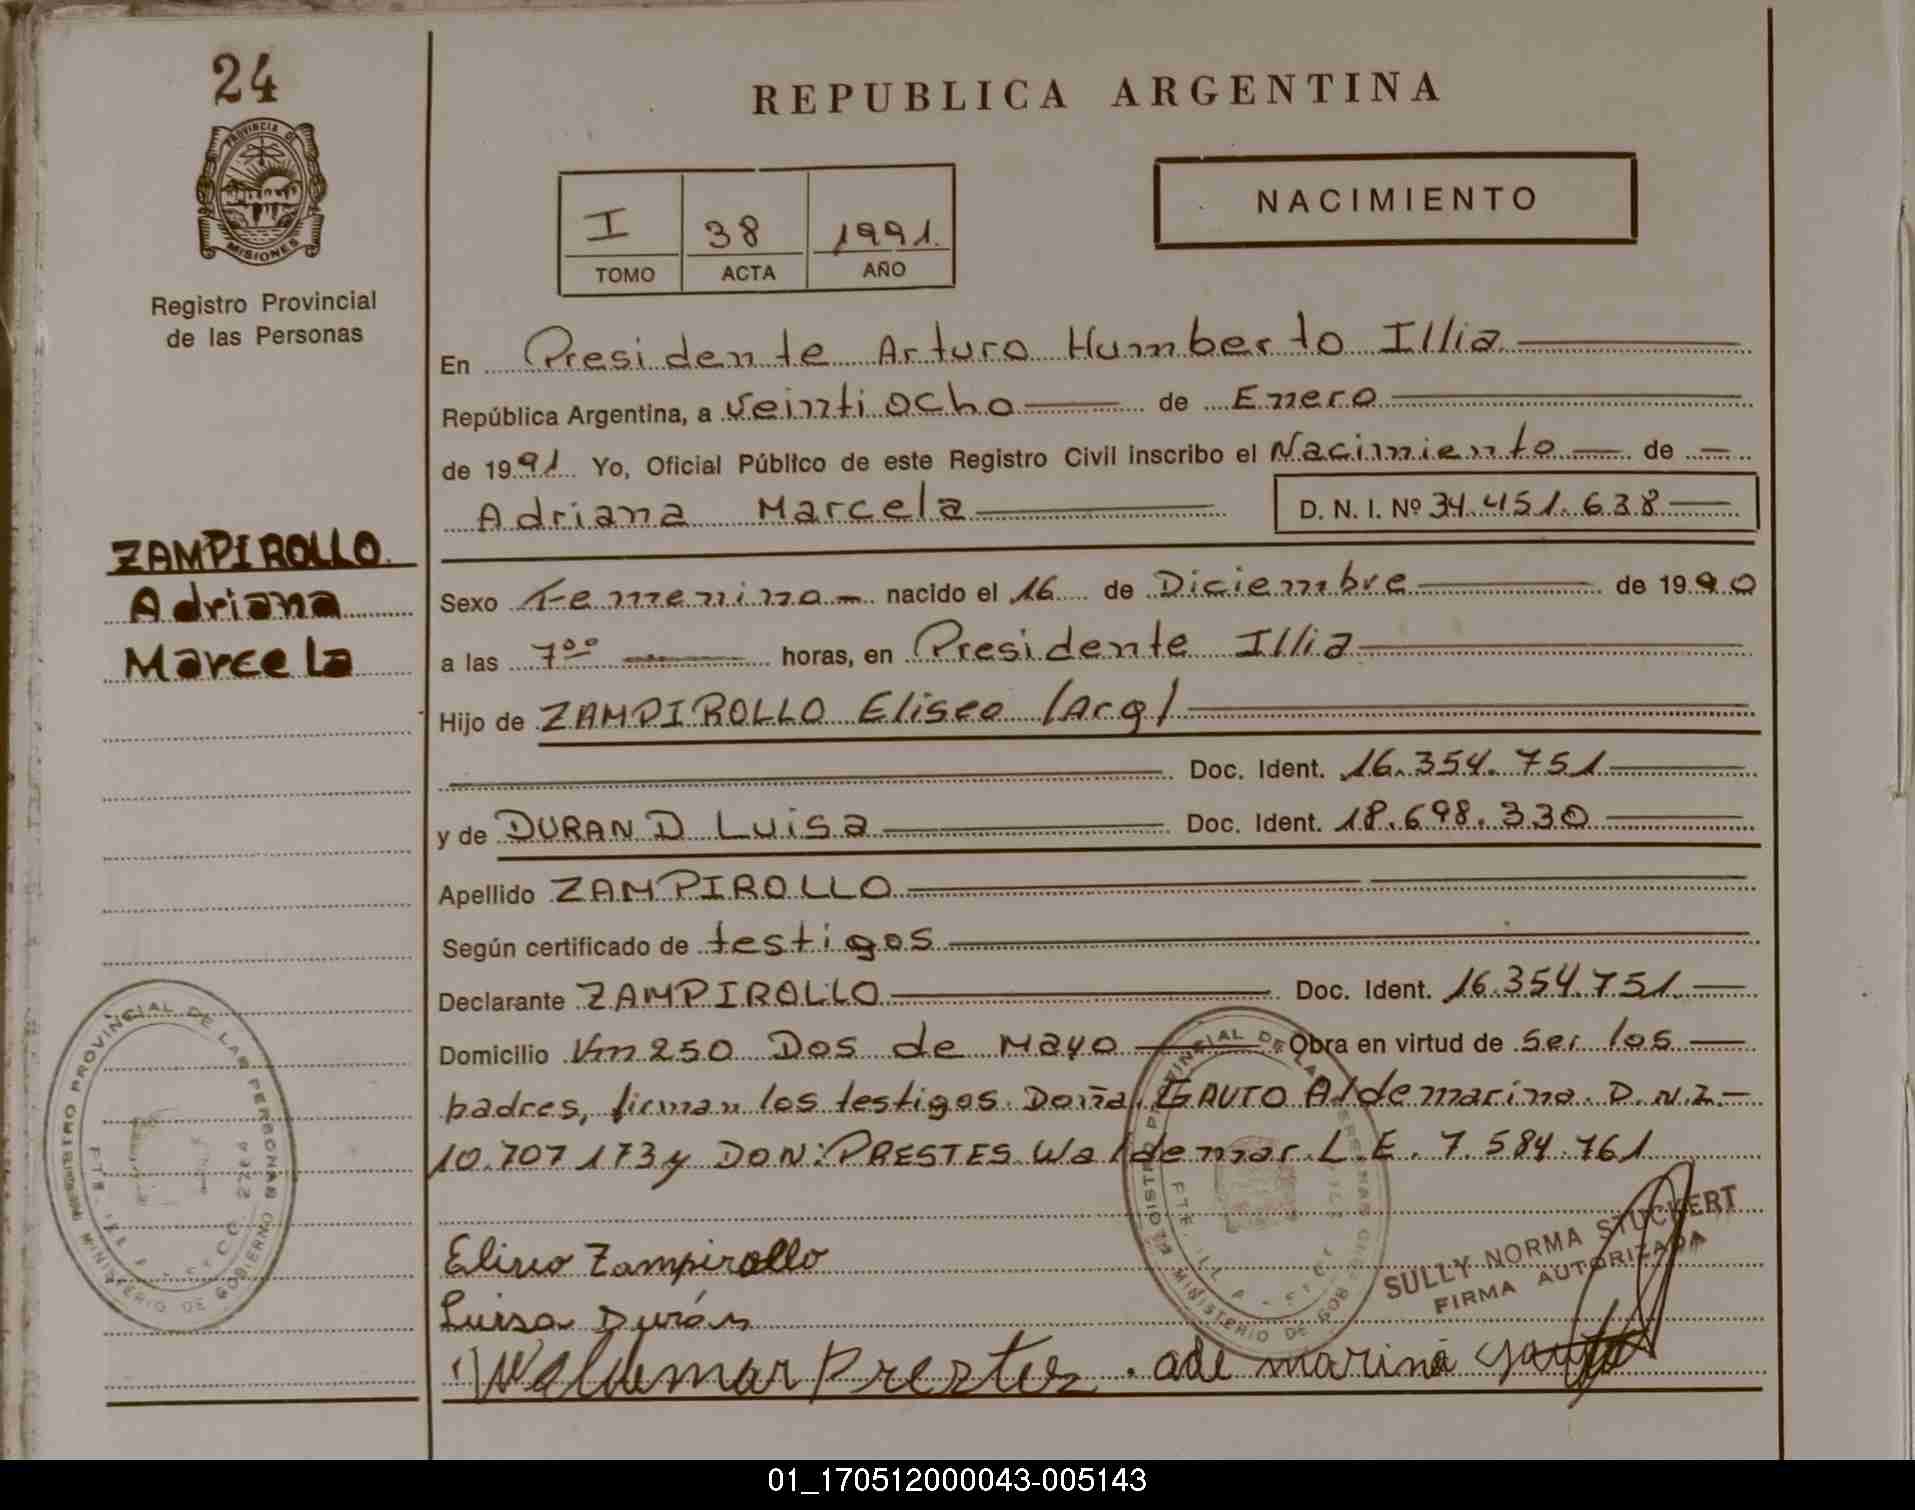 24
PROVINCIA DE
MISIONES
Registro Provincial
de las Personas
ZAMPIROLLO.
Adriana
Marcela
REPUBLICA ARGENTINA
I 38 1991.
TOMO ACTA AÑO
NACIMIENTO
En Presidente Arturo Humberto Illia
República Argentina, a veintiocho de Enero
de 1991 Yo, Oficial Público de este Registro Civil inscribo el Nacimiento de
Adriana Marcela D. N. I. Nº 34.451.638
Sexo Femenino nacido el 16 de Diciembre de 1990
a las 7ºº horas, en Presidente Illia
Hijo de ZAMPIROLLO Eliseo (Arg)
Doc. Ident. 16.354.751
y de DURAND Luisa Doc. Ident. 18.698.330
Apellido ZAMPIROLLO
Según certificado de testigos
Declarante ZAMPIROLLO Doc. Ident. 16.354.751
Domicilio Km 250 Dos de Mayo Obra en virtud de ser los
padres, firman los testigos Doña: GAUTO Aldemarina D.N.I.
10.707173 y DON: PRESTES Waldemar L.E. 7.584.761
REGISTRO PROVINCIAL DE LAS PERSONAS
MINISTERIO DE GOBIERNO
REGISTRO PROVINCIAL DE LAS PERSONAS
MINISTERIO DE GOB
SULLY NORMA STUCKERT
FIRMA AUTORIZADA
Eliseo Zampirollo
Luisa Durán
Waldemar Prestes
01_170512000043-005143